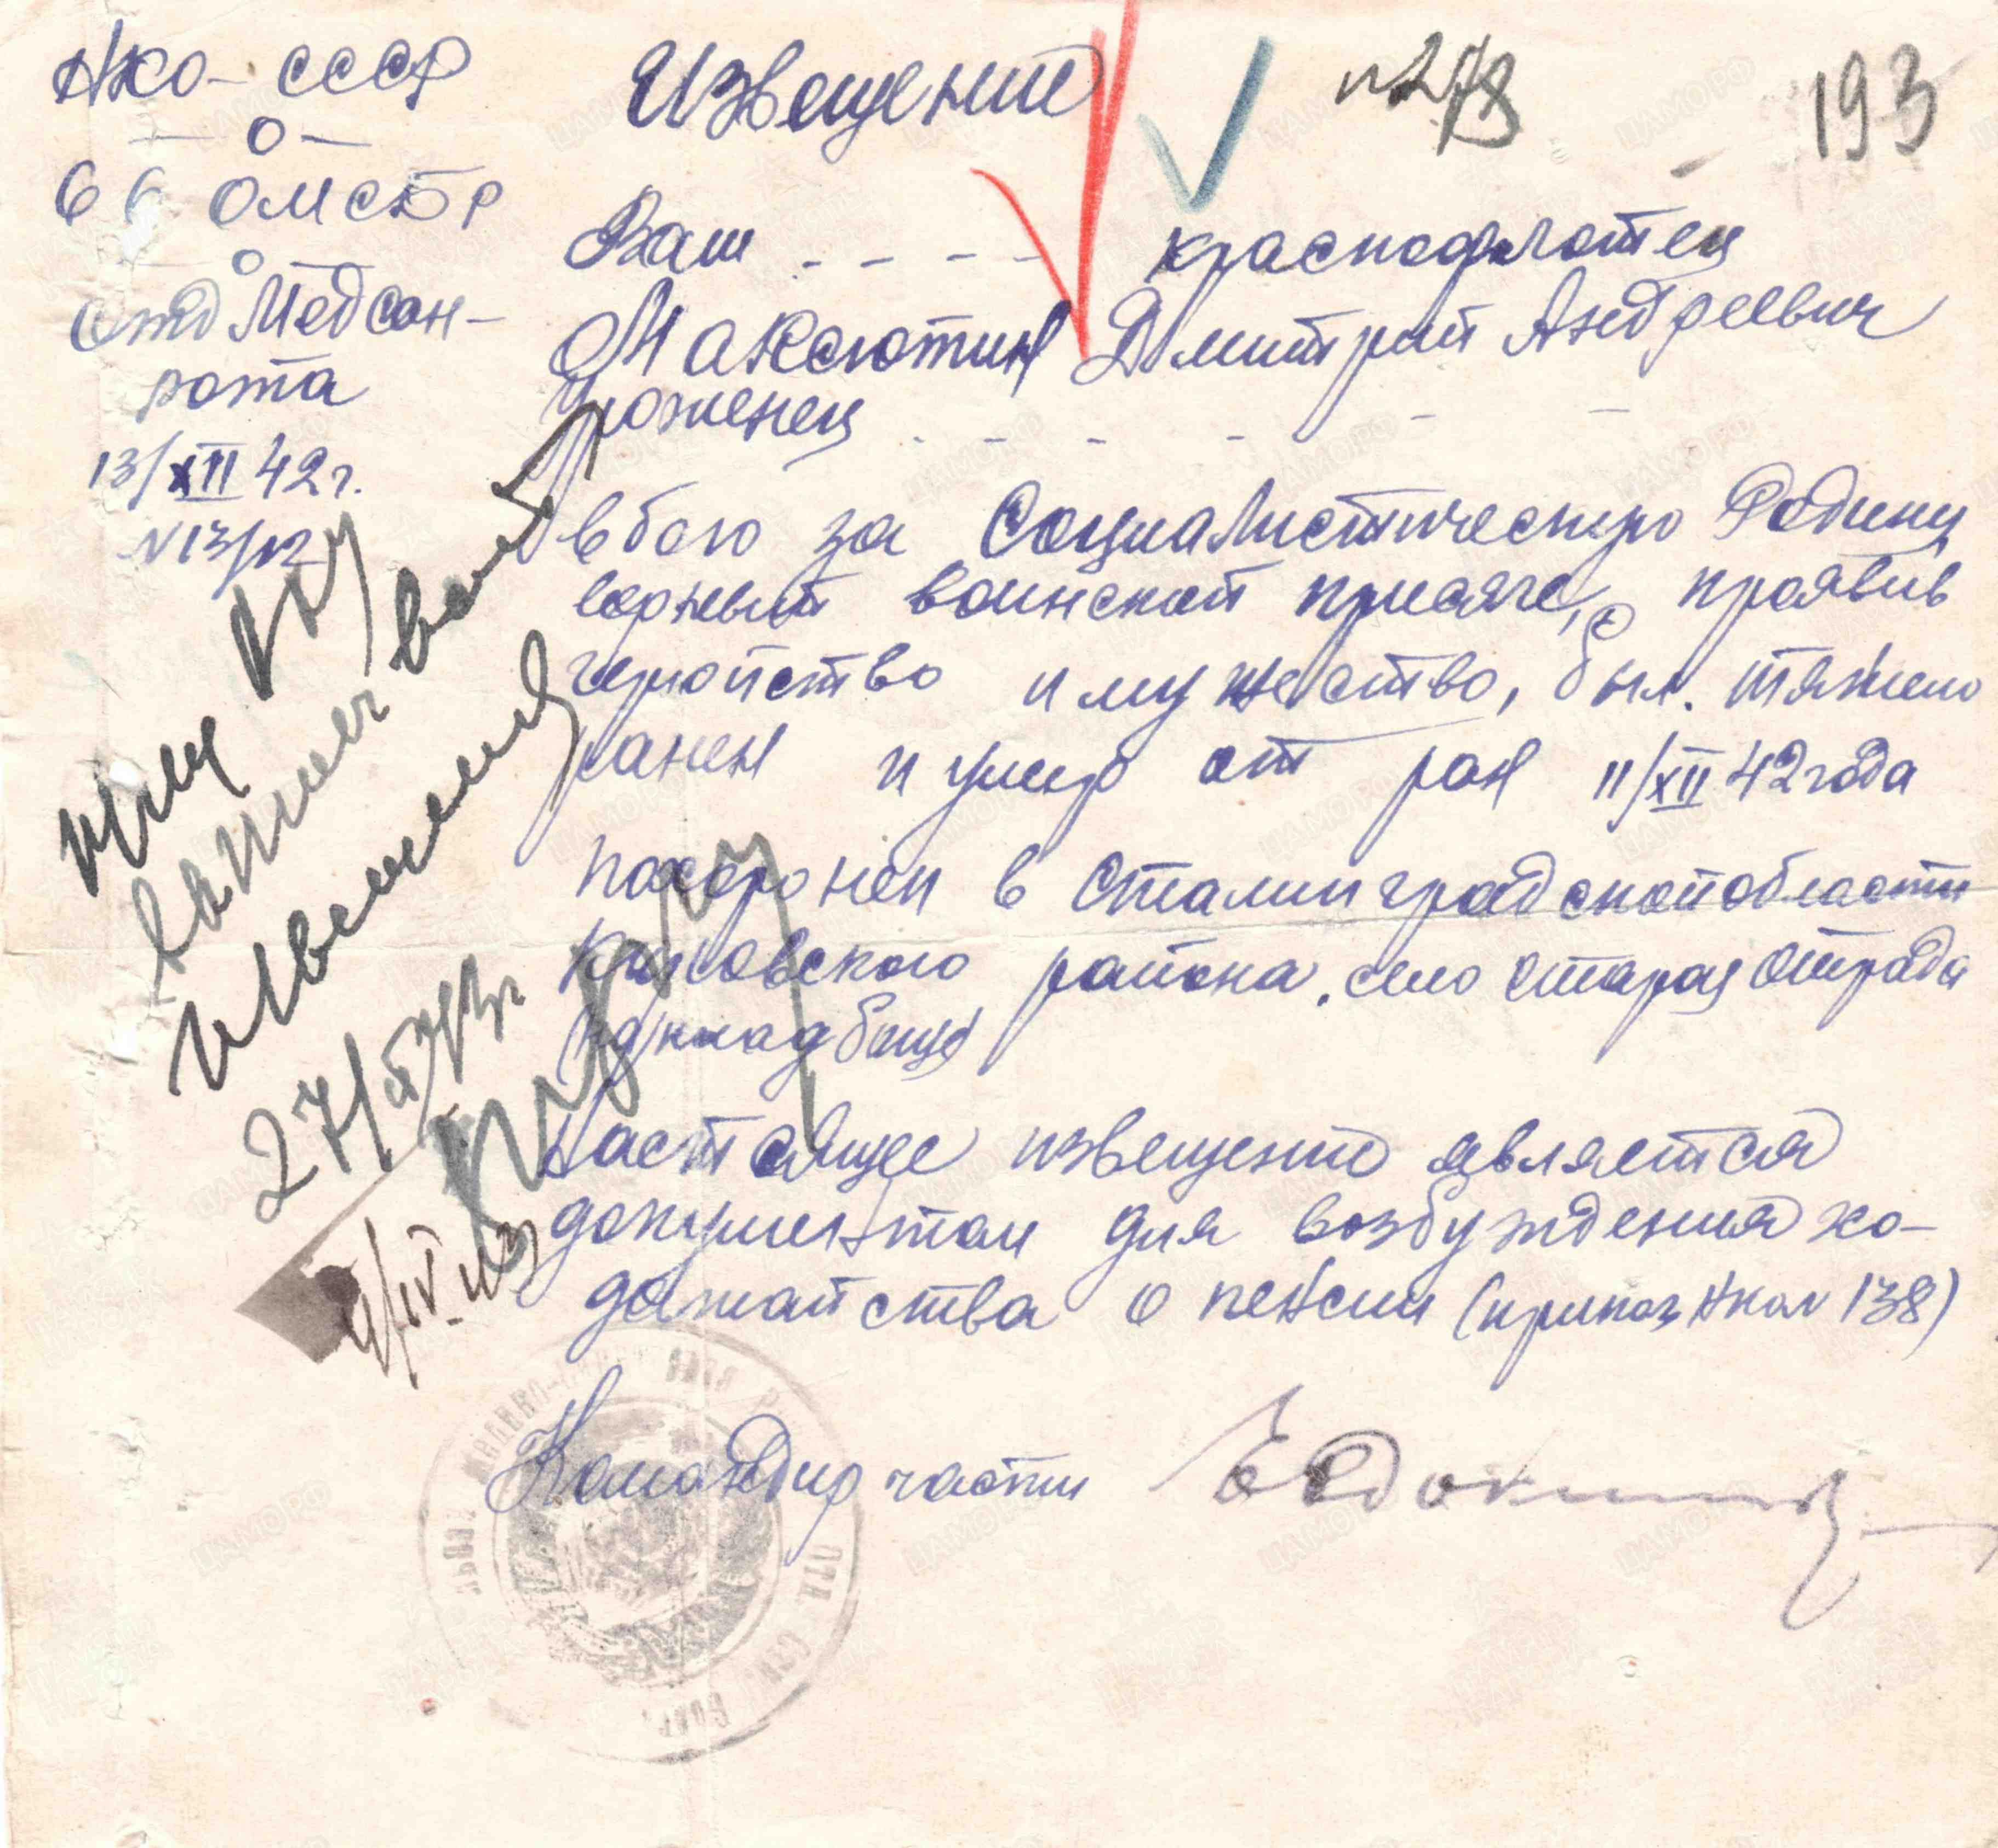 НКО - СССР
— о —
66 ОМСБР
— о —
Отд Медсан-
рота
13/XII 42 г.
N 13/12
Извещение
N 278
193
Ваш - - - - краснофлотец
Максютин Дмитрий Андреевич
Уроженец - - - - - -
в бою за Социалистическую Родину
верный воинской присяге, проявив
геройство и мужество, был. тяжело
ранен и умер от ран 11/XII 42 года
похоронен в Сталинградской области
Круговского района, село Старая Отрада
на кладбище
Настоящее извещение является
документом для возбуждения хо-
датайства о пенсии (приказ НКО N 138)
Командир части Евдокимов
извещения
27/